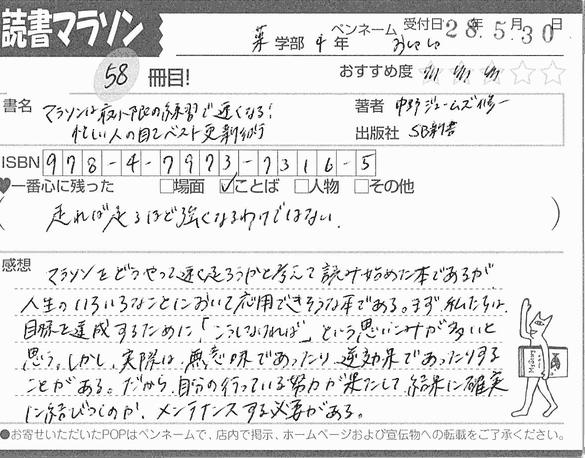 読書マラソン
薬 学部 4 年 ペンネーム おしゃしゃ 受付日 28年 5月 30日
58 冊目! おすすめ度
書名 マラソンは最小限の練習で速くなる! 著者 中野ジェームズ修一
忙しい人の自己ベスト更新術 出版社 SB新書
ISBN 978-4-7973-7316-5
一番心に残った □場面 ☑ことば □人物 □その他
( 走れば走るほど強くなるわけではない. )
感想 マラソンをどうやって速く走ろうかと考えて読み始めた本であるが
人生のいろいろなことにおいて応用できそうな本である。まず 私たちは
目標を達成するために「こうしなければ」という思いこみが多いと
思う。しかし、実際は無意味であったり 逆効果であったりする
ことがある。だから、自分の行っている努力が果たして 結果に確実
に結びつくのか、メンテナンスする必要がある。
●お寄せいただいたPOPはペンネームで、店内で掲示、ホームページおよび宣伝物への転載をご了承ください。